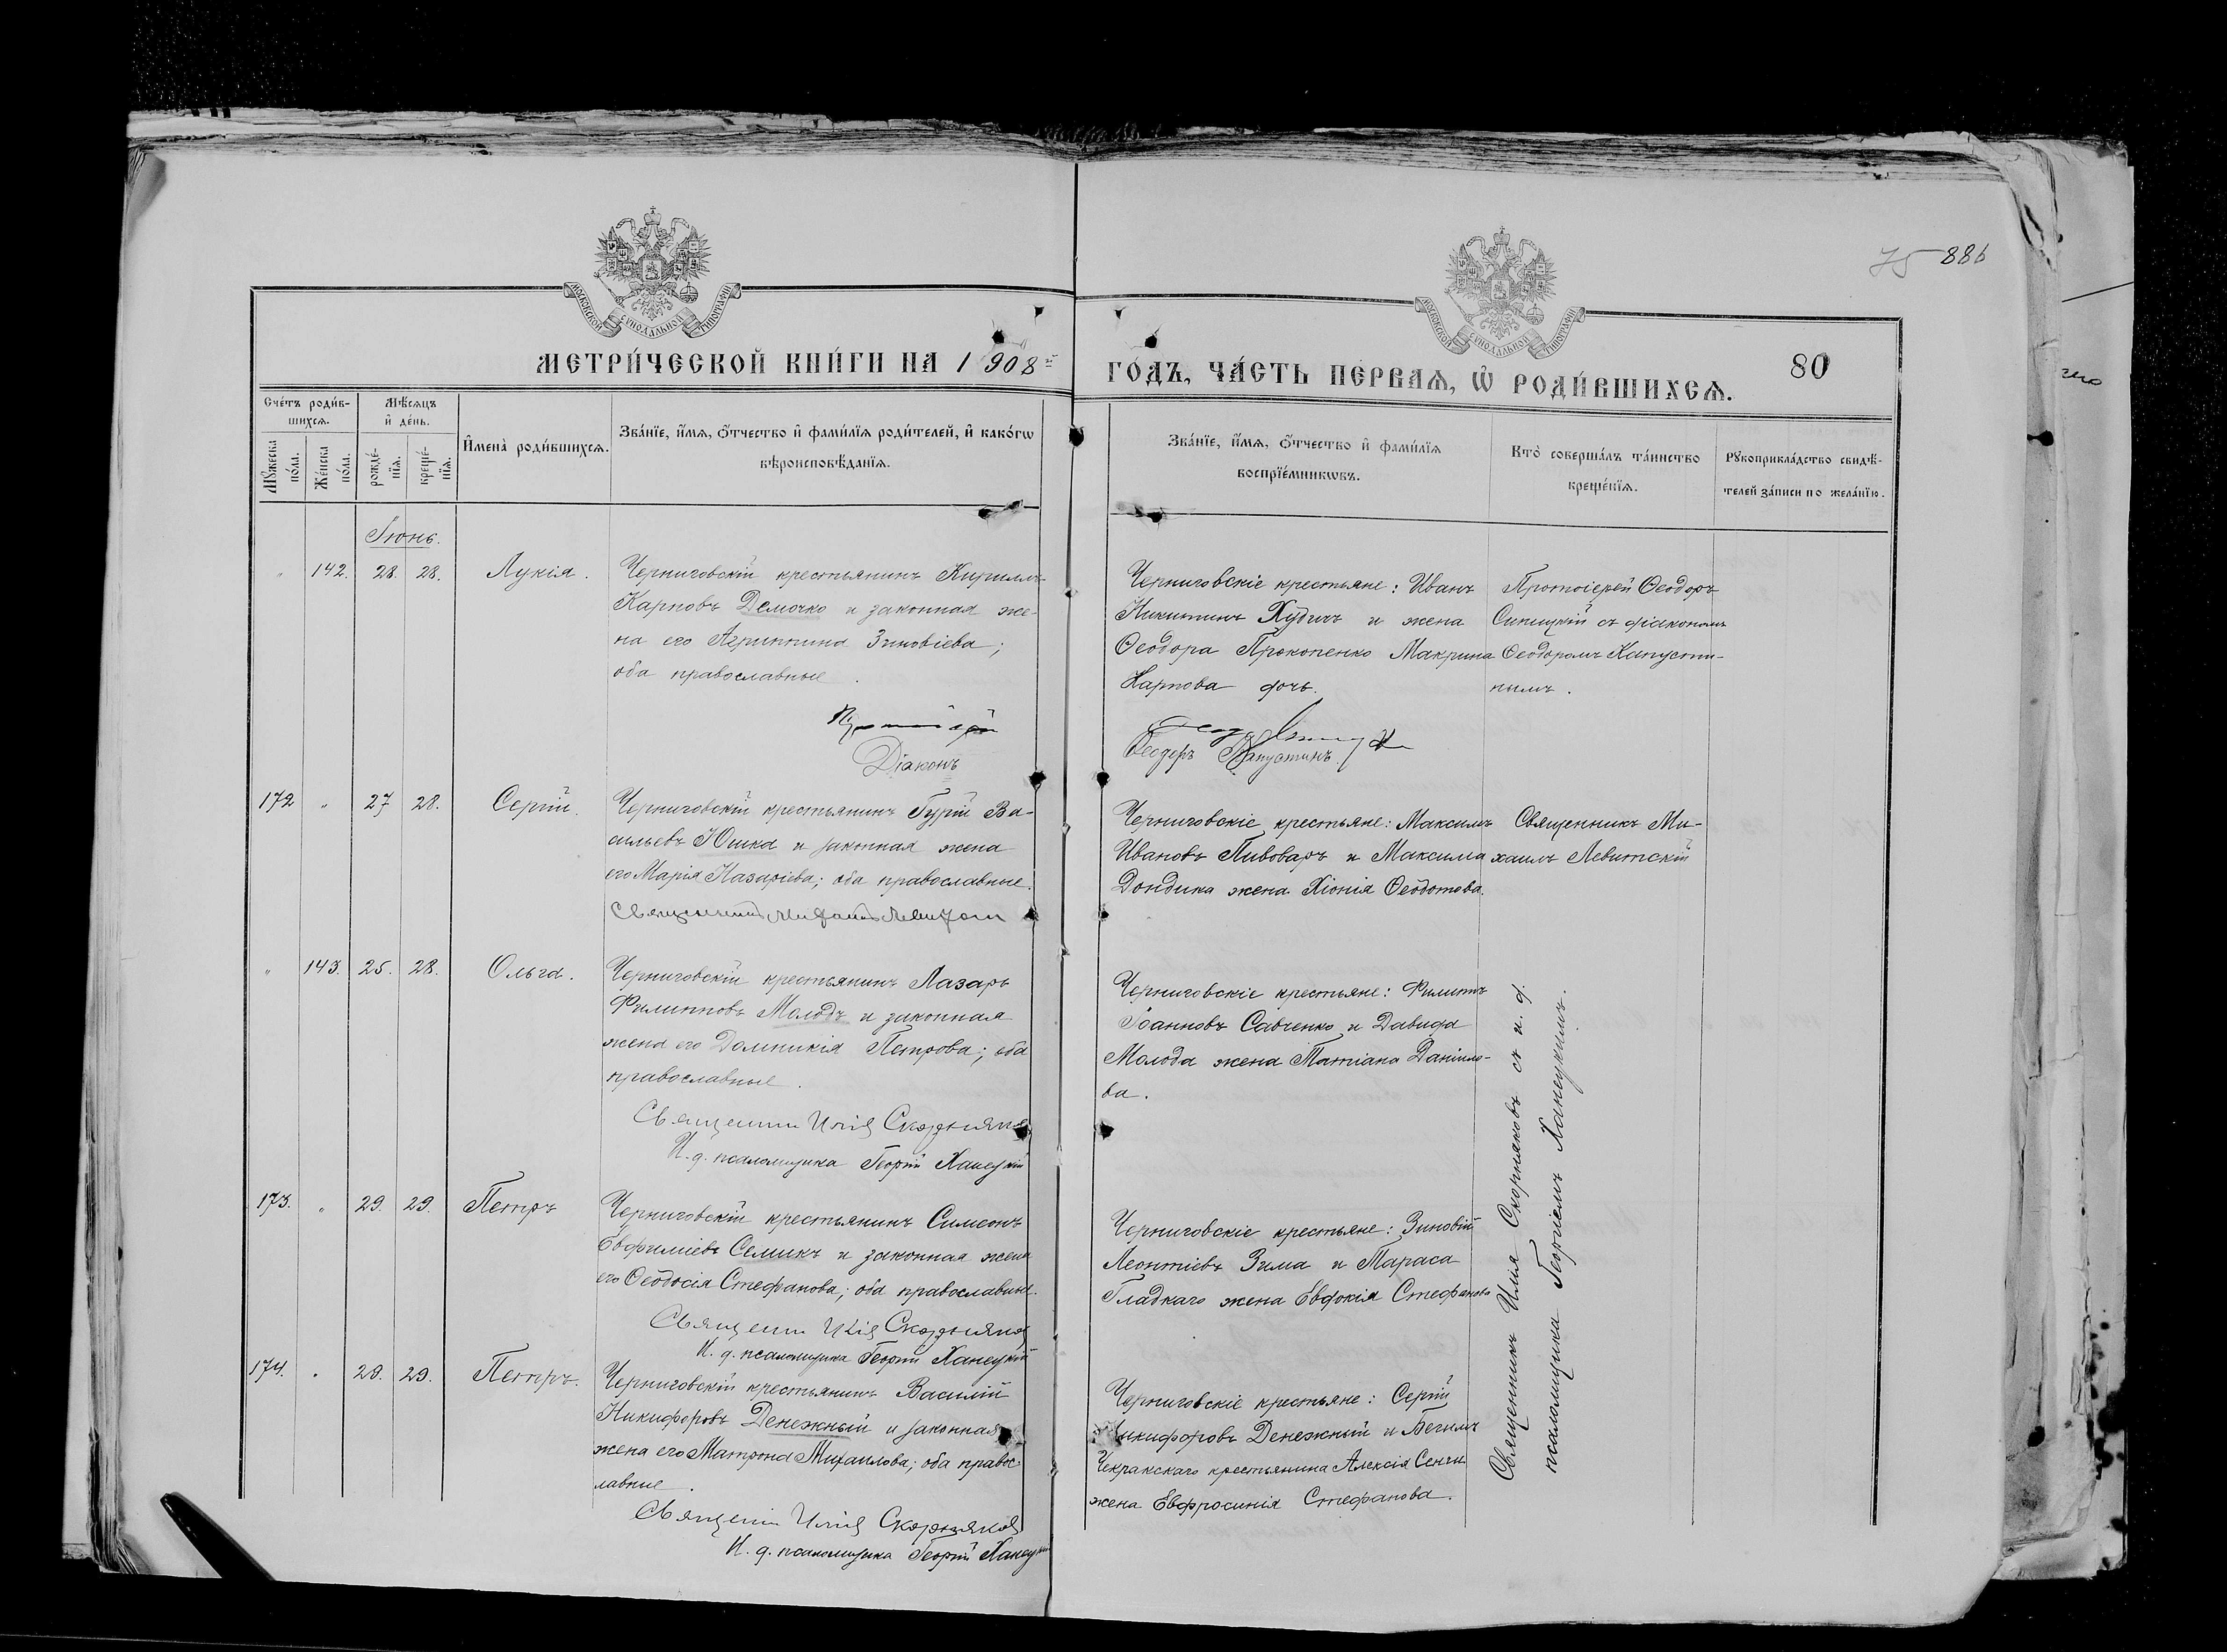 75 886
МОСКОВСКОЙ СѴНОДАЛЬНОЙ ТИПОГРАФІИ
МОСКОВСКОЙ СѴНОДАЛЬНОЙ ТИПОГРАФІИ
МЕТРИ́ЧЕСКОЙ КНИ́ГИ НА 1908й
ГО́ДЪ, ЧА́СТЬ ПЕ́РВАѦ, Ѡ҆ РОДИ́ВШИХСѦ.
80
Сче́тъ роди́в-
шихсѧ.
Мѣ́сѧцъ
и҆ де́нь.
Мꙋ́жеска
по́ла.
Же́нска
по́ла.
рожде́-
нїѧ.
креще́-
нїѧ.
И҆мена̀ роди́вшихсѧ.
Зва́нїе, и҆́мѧ, ѻ҆́тчество и҆ фами́лїѧ роди́телей, и҆ како́гѡ
вѣроисповѣ́данїѧ.
Зва́нїе, и҆́мѧ, ѻ҆́тчество и҆ фами́лїѧ
воспрїе́мникѡвъ.
Кто̀ соверша́лъ та́инство
креще́нїѧ.
Рꙋкоприкла́дство свидѣ́-
телей за́писи по жела́нїю.
Іюнь.
" 142. 28. 28. Лукія.
Черниговскій крестьянинъ Кириллъ
Карповъ Демочко и законная же-
на его Агриппина Зиновіева;
оба православные.
Черниговскіе крестьяне: Иванъ
Никитинъ Худичъ и жена
Ѳеодора Прокопенко Макрина
Карпова дочь.
Протоіерей Ѳеодоръ
Синицкій съ діакономъ
Ѳеодоромъ Капусти-
нымъ.
Протоіерей
Діаконъ
Ѳеодоръ Капустинъ
172 " 27 28. Сергій.
Черниговскій крестьянинъ Гурій Ва-
сильевъ Юшка и законная жена
его Марія Назаріева; оба православные.
Священникъ Михаилъ Левитскій
Черниговскіе крестьяне: Максимъ
Ивановъ Пивоваръ и Максима
Дондика жена Хіонія Ѳеодотова.
Священникъ Ми-
хаилъ Левитскій
" 143. 25. 28. Ольга.
Черниговскій крестьянинъ Лазарь
Филипповъ Молодъ и законная
жена его Домникія Петрова; оба
православные.
Священникъ Илія Скорняковъ
И. д. псаломщика Георгій Ханецкій
Черниговскіе крестьяне: Филиппъ
Іоанновъ Савченко и Давида
Молода жена Татіана Даніило-
ва.
Священникъ Илія Скорняковъ съ и. д.
псаломщика Георгіемъ Ханецкимъ.
173. " 29. 29. Петръ
Черниговскій крестьянинъ Симеонъ
Евфиміевъ Семикъ и законная жена
его Ѳеодосія Стефанова; оба православные.
Священникъ Илія Скорняковъ
И. д. псаломщика Георгій Ханецкій
Черниговскіе крестьяне: Зиновій
Леонтіевъ Зима и Тараса
Гладкаго жена Евдокія Стефанова
174. " 28. 29. Петръ.
Черниговскій крестьянинъ Василій
Никифоровъ Денежный и законная
жена его Матрона Михаилова; оба правос-
лавные.
Священникъ Илія Скорняковъ
И. д. псаломщика Георгій Ханецкій
Черниговскіе крестьяне: Сергій
Никифоровъ Денежный и Бегимъ
Чекракскаго крестьянина Алексія Сенги
жена Евфросинія Стефанова.